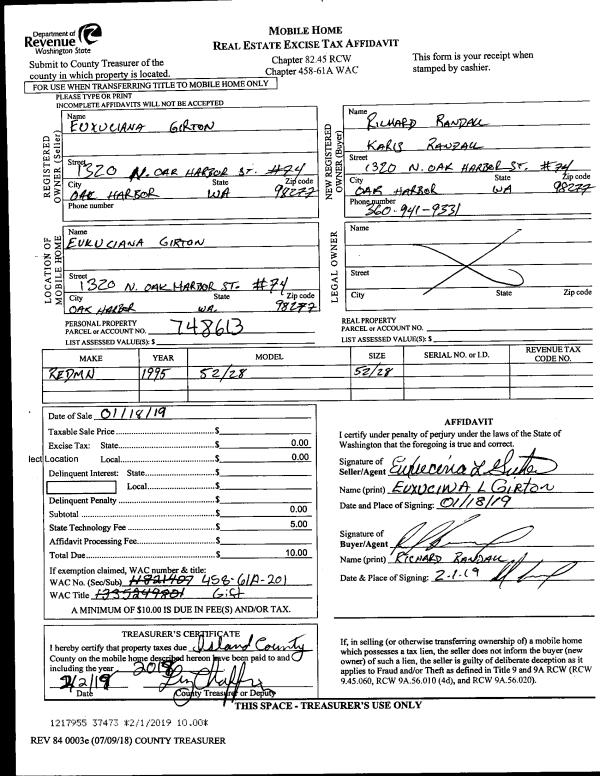 Department of
Revenue
Washington State
MOBILE HOME
REAL ESTATE EXCISE TAX AFFIDAVIT
Chapter 82.45 RCW
Chapter 458-61A WAC
This form is your receipt when
stamped by cashier.
Submit to County Treasurer of the
county in which property is located.
FOR USE WHEN TRANSFERRING TITLE TO MOBILE HOME ONLY
PLEASE TYPE OR PRINT
INCOMPLETE AFFIDAVITS WILL NOT BE ACCEPTED
REGISTERED
OWNER (Seller)
Name
EUXUCIANA GIRTON
Street
1320 N. OAK HARBOR ST. #74
City State Zip code
OAK HARBOR WA 98277
Phone number
NEW REGISTERED
OWNER (Buyer)
Name
RICHARD RANDALL
KARIS RANDALL
Street
1320 N. OAK HARBOR ST. #74
City State Zip code
OAK HARBOR WA 98277
Phone number
360-941-9331
LOCATION OF
MOBILE HOME
Name
EUXUCIANA GIRTON
Street
1320 N. OAK HARBOR ST. #74
City State Zip code
OAK HARBOR WA. 98277
LEGAL OWNER
Name
Street
City State Zip code
PERSONAL PROPERTY
PARCEL or ACCOUNT NO. 748613
LIST ASSESSED VALUE(S): $
REAL PROPERTY
PARCEL or ACCOUNT NO.
LIST ASSESSED VALUE(S): $
MAKE YEAR MODEL SIZE SERIAL NO. or I.D. REVENUE TAX
CODE NO.
REDMN 1995 52/28 52/28
Date of Sale 01/18/19
Taxable Sale Price $
Excise Tax: State $ 0.00
lect Location Local $ 0.00
Delinquent Interest: State $
Local $
Delinquent Penalty $
Subtotal $ 0.00
State Technology Fee $ 5.00
Affidavit Processing Fee $
Total Due $ 10.00
If exemption claimed, WAC number & title:
WAC No. (Sec/Sub) 458-61A-201
WAC Title Gift
A MINIMUM OF $10.00 IS DUE IN FEE(S) AND/OR TAX.
AFFIDAVIT
I certify under penalty of perjury under the laws of the State of
Washington that the foregoing is true and correct.
Signature of
Seller/Agent
Name (print) EUXUCIWA L GIRTON
Date and Place of Signing: 01/18/19
Signature of
Buyer/Agent
Name (print) RICHARD RANDALL
Date & Place of Signing: 2-1-19
TREASURER'S CERTIFICATE
I hereby certify that property taxes due Island County
County on the mobile home described hereon have been paid to and
including the year 2018
2/2/19
Date County Treasurer or Deputy
If, in selling (or otherwise transferring ownership of) a mobile home
which possesses a tax lien, the seller does not inform the buyer (new
owner) of such a lien, the seller is guilty of deliberate deception as it
applies to Fraud and/or Theft as defined in Title 9 and 9A RCW (RCW
9.45.060, RCW 9A.56.010 (4d), and RCW 9A.56.020).
THIS SPACE - TREASURER'S USE ONLY
1217955 37473 *2/1/2019 10.00*
REV 84 0003e (07/09/18) COUNTY TREASURER